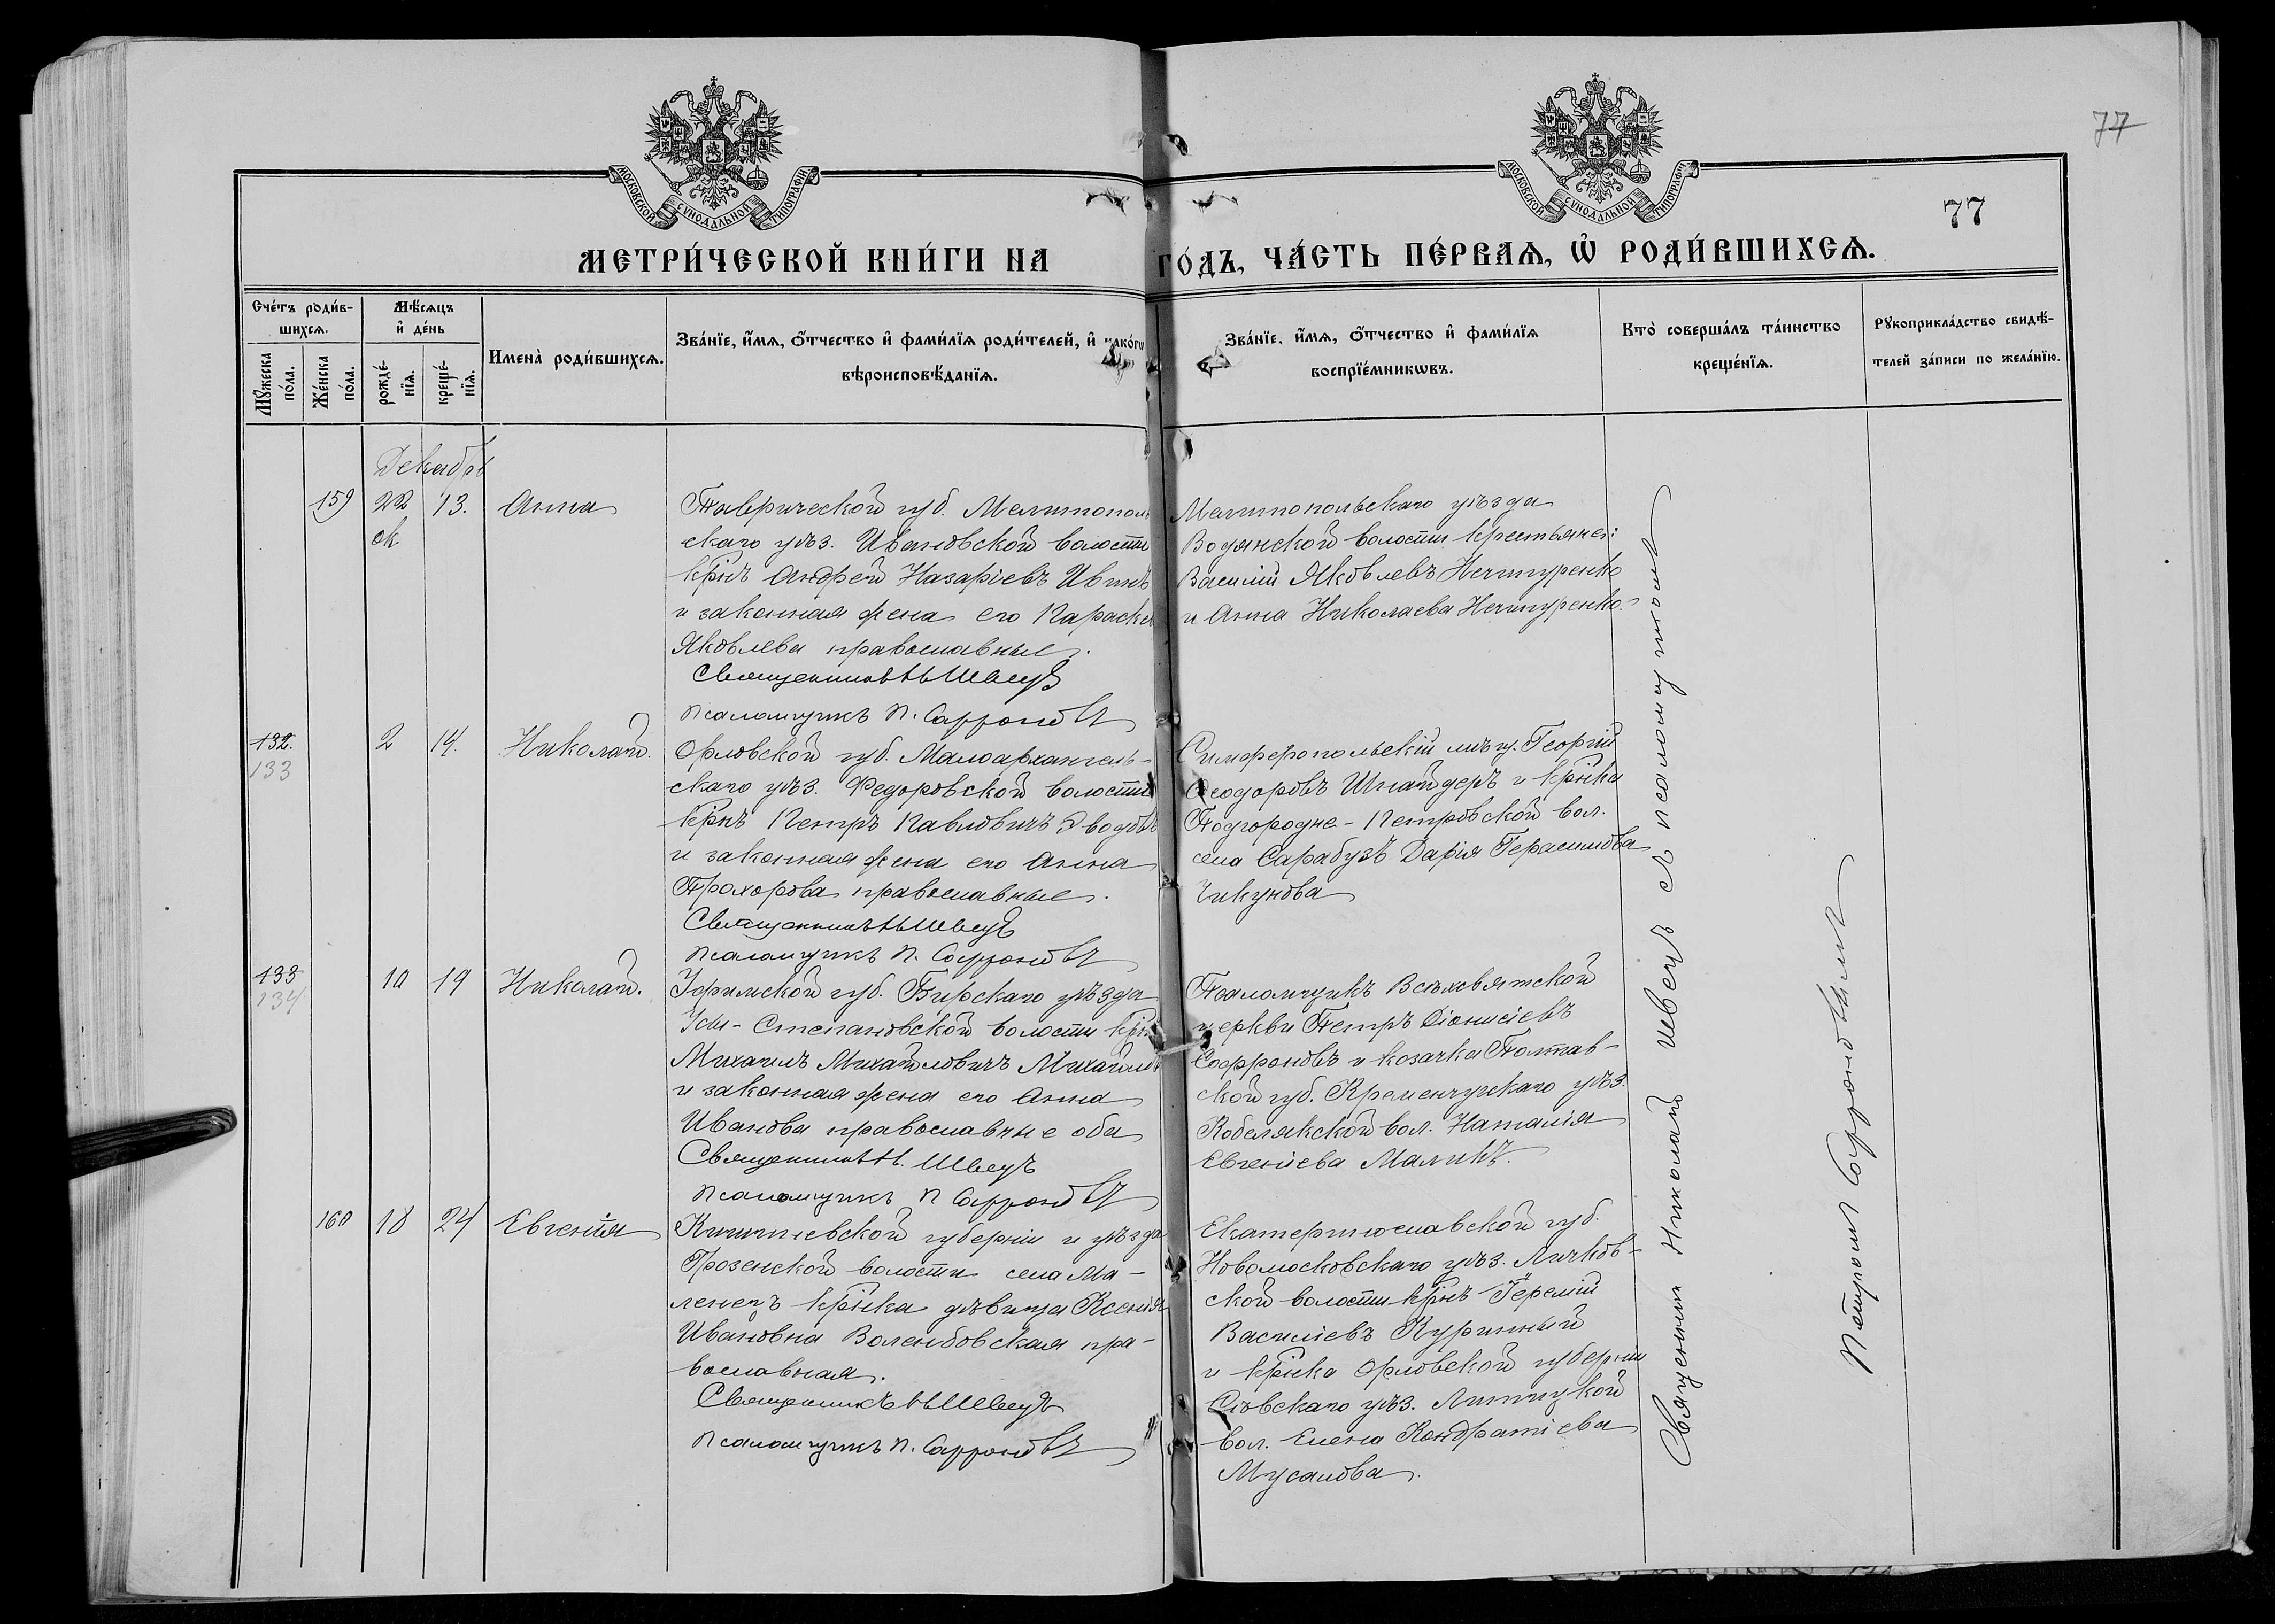 77
МОСКОВСКОЙ СѴНОДАЛЬНОЙ ТИПОГРАФІИ
МОСКОВСКОЙ СѴНОДАЛЬНОЙ ТИПОГРАФІИ
77
МЕТРИ́ЧЕСКОЙ КНИ́ГИ НА ГО́ДЪ, ЧА́СТЬ ПЕ́РВАѦ, Ѡ РОДИ́ВШИХСѦ.
Сче́тъ роди́в-
шихсѧ.
Мꙋ́жеска по́ла.
Же́нска по́ла.
Мѣ́сѧцъ и де́нь
рожде́-нїѧ.
креще́-нїѧ.
Имена̀ роди́вшихсѧ.
Зва́нїе, и́мѧ, ѻ́тчество и фами́лїѧ роди́телей, и како́гѡ
вѣроисповѣ́данїѧ.
Зва́нїе, и́мѧ, ѻ́тчество и фами́лїѧ
воспрїе́мникѡвъ.
Кто̀ соверша́лъ та́инство
креще́нїѧ.
Рꙋкоприкла́дство свидѣ́-
телей за́писи по жела́нїю.
Декабрь
159 22 13. Анна
ок.
Таврической губ. Мелитополь
скаго уѣз. Ивановской волости
крнъ Андрей Назаріевъ Ивинъ
и законная жена его Параске
Яковлева православные.
Священникъ Н Швецъ
Псаломщикъ П. Софроновъ
Мелитопольскаго уѣзда
Водянской волости крестьяне:
Василій Яковлевъ Нечитуренко
и Анна Николаева Нечитуренко
132. 2 14. Николай.
133
Орловской губ. Малоархангель-
скаго уѣз. Федоровской волости
крнъ Петръ Павловичъ
и законная жена его Анна
Прохорова православные.
Священникъ Н Швецъ
Псаломщикъ П. Софроновъ
Симферопольскій мѣщ. Георгій
Феодоровъ Шнайдеръ и крнка
Подгородне-Петровской вол.
села Сарабузъ Дарія Герасимова
Чикунова
133 10 19 Николай.
134
Уфимской губ. Бирскаго уѣзда
Степановской волости крн
Михаилъ Михайловичъ Михайлов
и законная жена его Анна
Иванова православные оба
Священникъ Н. Швецъ
Псаломщикъ П Софроновъ
Псаломщикъ Всѣхсвятской
церкви Петръ Діонисіевъ
Софроновъ и козачка Полтав-
ской губ. Кременчугскаго уѣз.
Кобелякской вол. Наталія
Евгеніева Маликъ.
160 18 24 Евгенія
Кишиневской губерніи и уѣзда
Грозенской волости села Ма-
ленецъ крнка дѣвица Ксенія
Ивановна пра-
вославная.
Священникъ Н Швецъ
Псаломщикъ П. Софроновъ
Екатеринославской губ.
Новомосковскаго уѣз. Личков-
ской волости крнъ Іеремій
Василіевъ Куринный
и крнка Орловской губерніи
Сѣвскаго уѣз.
вол. Елена Кондратіева
Мусалова.
Священник Николай Швецъ с псаломщиком
Петром Софроновымъ